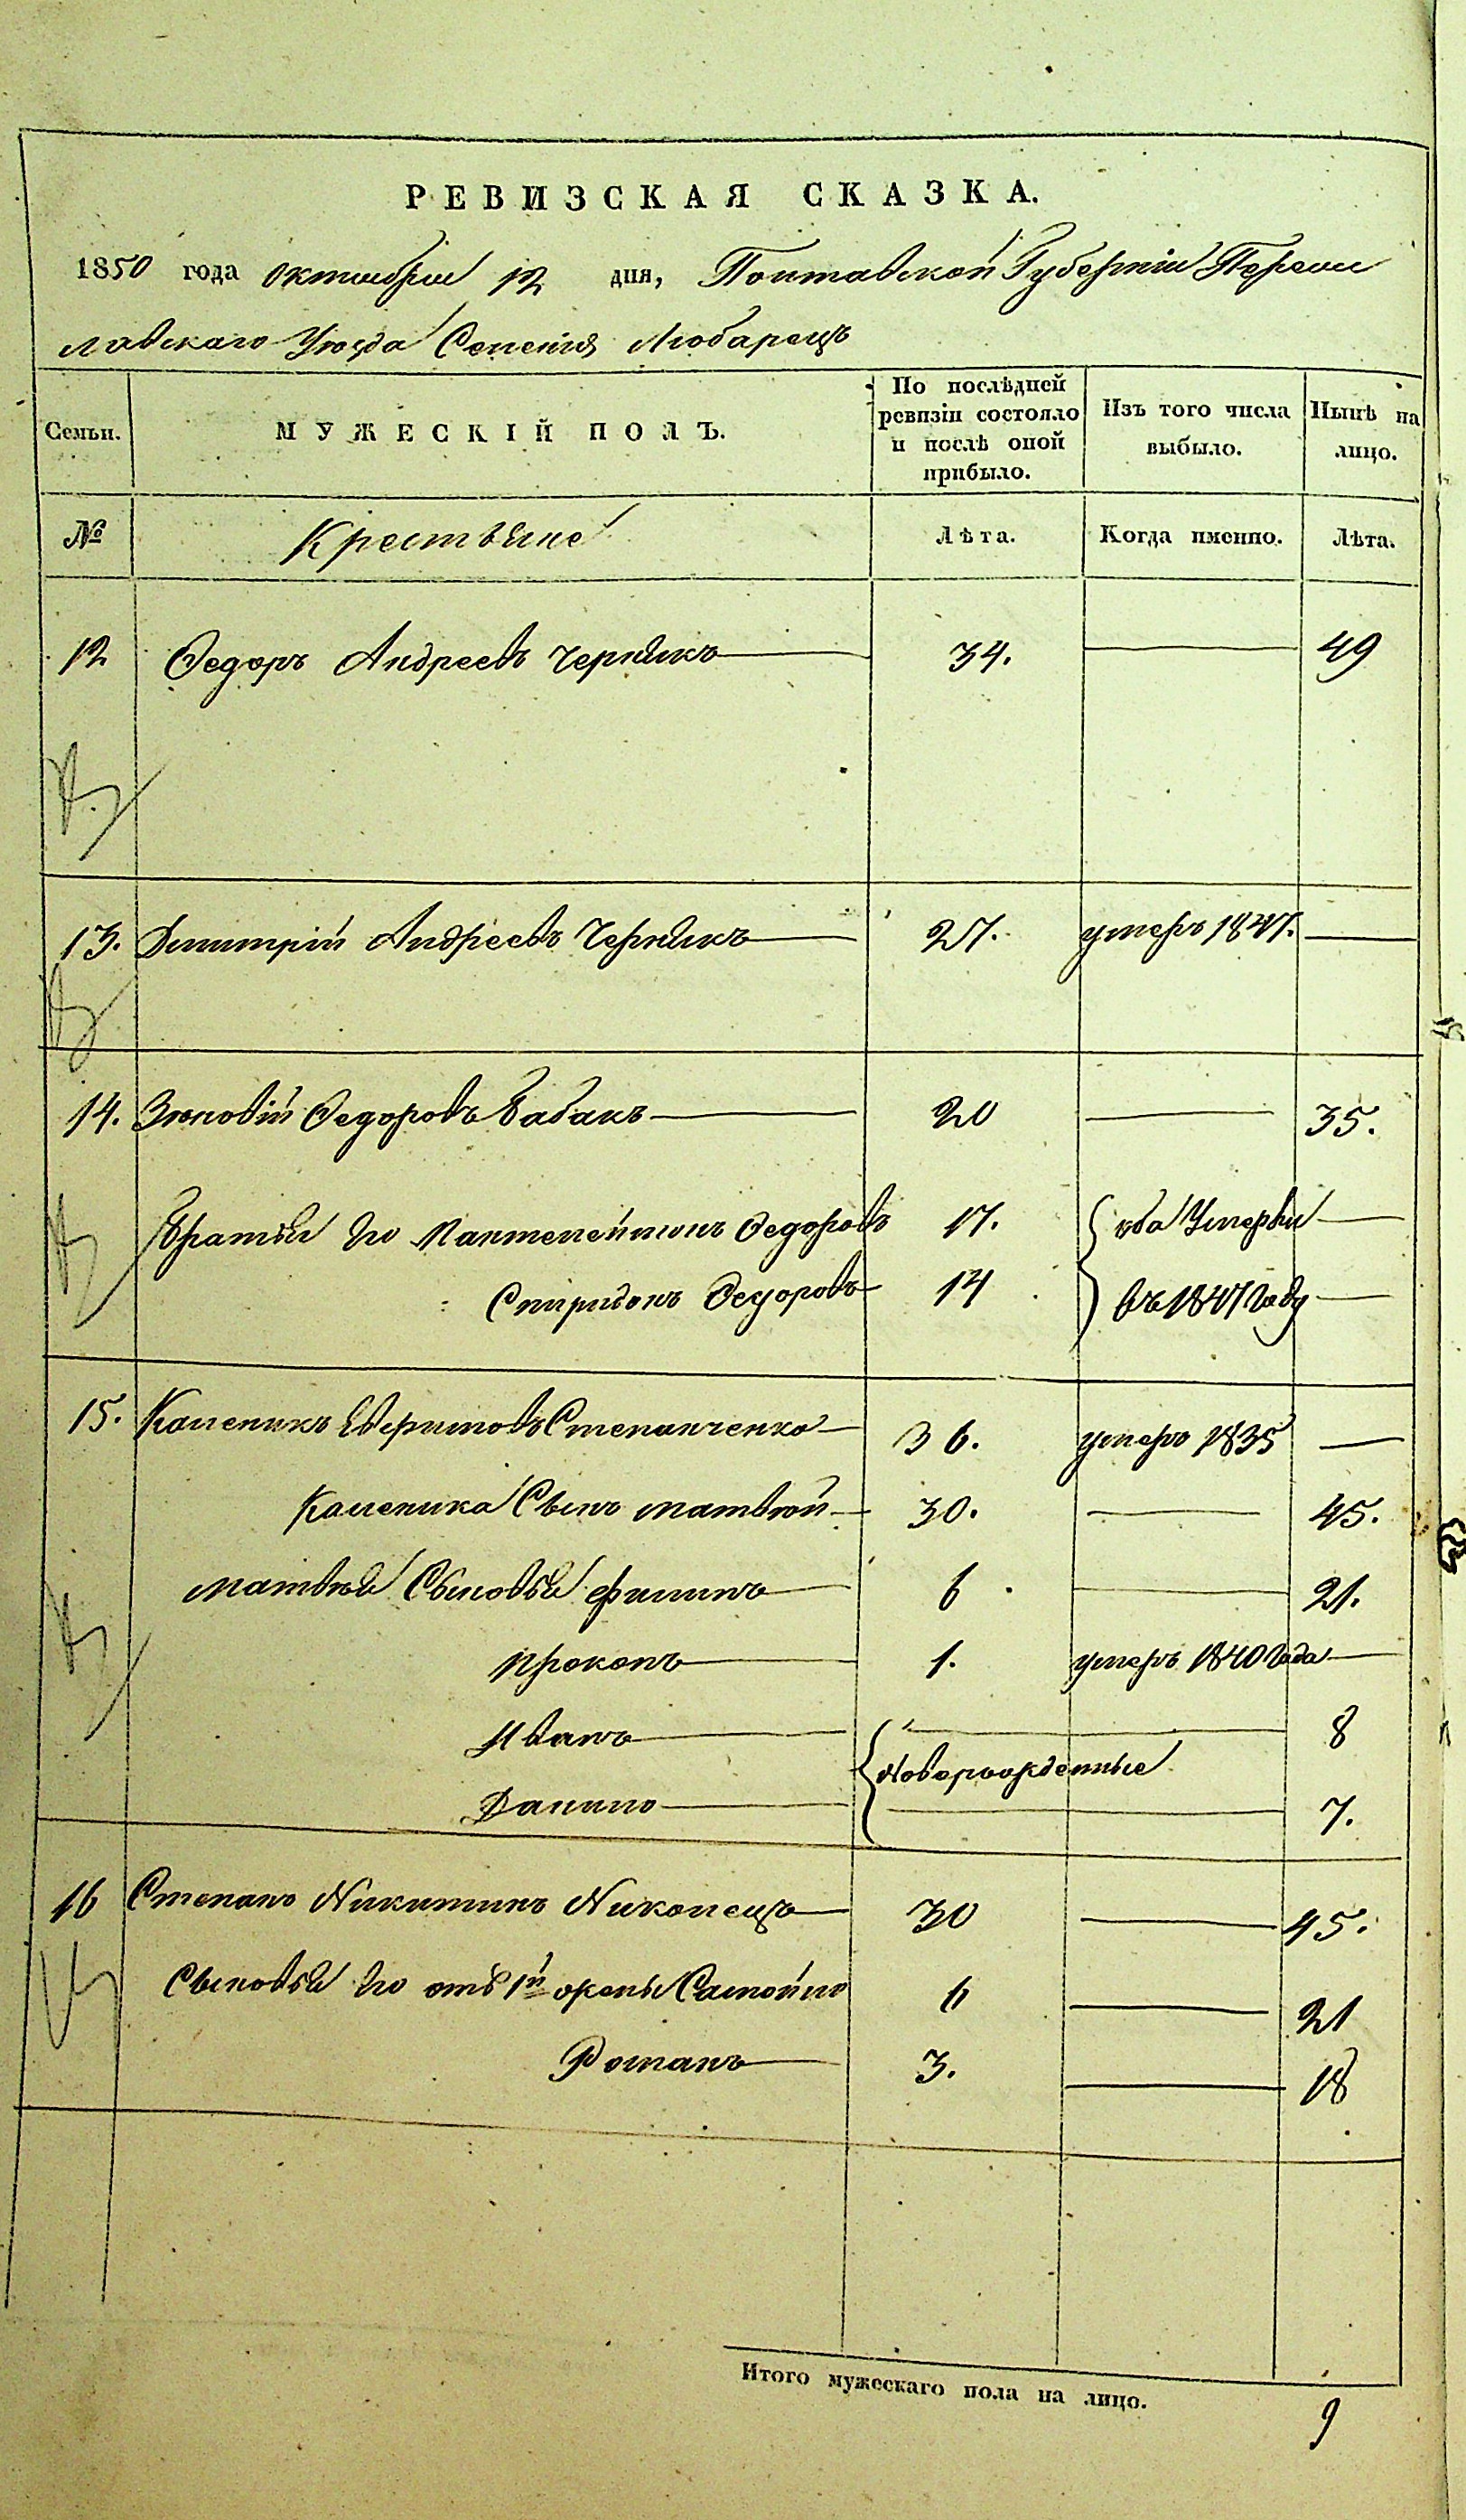 РЕВИЗСКАЯ СКАЗКА.
1850 года Октября 12 дня, Полтавской Губерніи Переяс
лавскаго Уѣзда Селенія Любарецъ
Семьи. МУЖЕСКІЙ ПОЛЪ. По послѣдней ревизіи состояло и послѣ оной прибыло. Изъ того числа выбыло. Нынѣ на лицо.
№ Крестьяне Лѣта. Когда именно. Лѣта.
12 Федоръ Андреевъ Чернякъ 34. 49
13. Дмитрій Андреевъ Чернякъ 27. умеръ 1847.
14. Зѣновій Федоровъ Бабакъ 20 35.
Братья его Пантелеймонъ Федоровъ 17. оба Умерли
Спиридонъ Федоровъ 14 въ 1847 году
15. Каленикъ Степанченко 36. умеръ 1835
Каленика Сынъ Матвѣй 30. 45.
Матвѣя Сыновья Филипъ 6 21.
Прокопъ 1. умеръ 1840 года
Иванъ 8
Новорожденные
Данило 7.
16 Степанъ Никитинъ 30 45.
Сыновья его отъ 1й жены Самойло 6 21
Романъ 3. 18
Итого мужескаго пола на лицо. 9